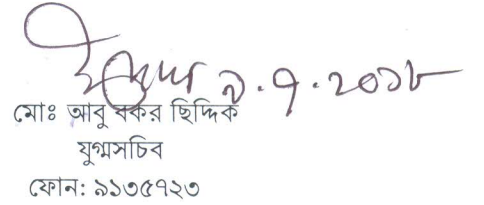 ৯.৭.২০১৮
মোঃ আবু বকর ছিদ্দিক
যুগ্মসচিব
ফোন: ৯১৩৫৭২৩